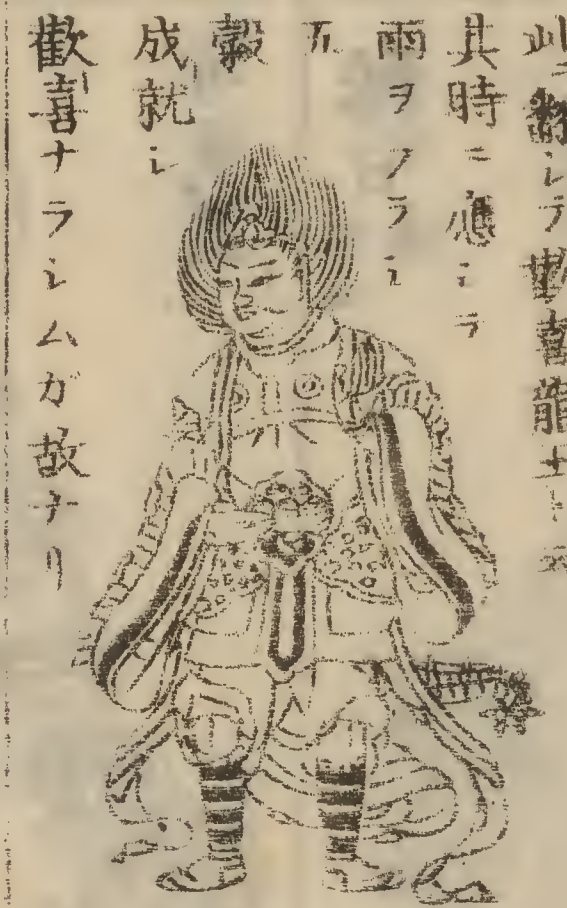 此ニ翻シテ歡喜龍王ト云
其時ニ應シテ
雨ヲフラシ
五
穀
成就シ
歡喜ナラシムガ故ナリ